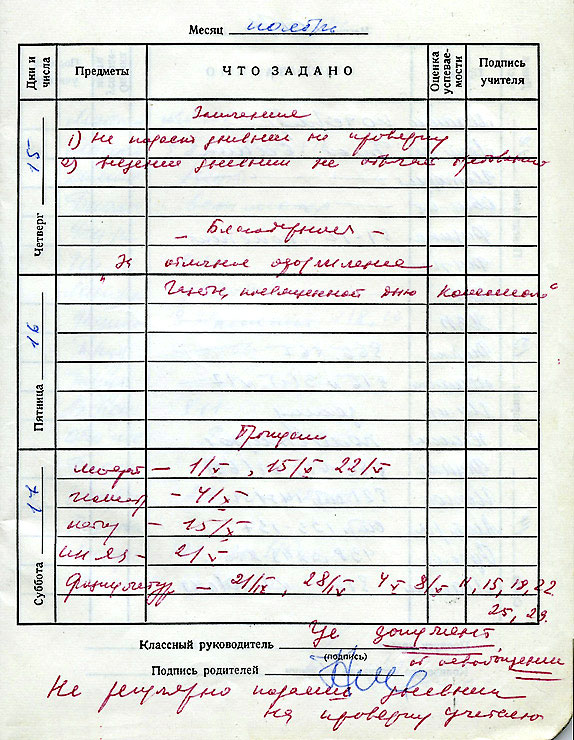 Месяц ноябрь
Дни и числа
Предметы
ЧТО ЗАДАНО
Оценка успеваемости
Подпись учителя
Четверг 15
Замечания
1) Не подает дневник на проверку
2) ведение дневника не отвечает требованию
– Благодарность –
За отличное оформление
газеты, посвященной дню Комсомола"
Пятница 16
Пропуски
Суббота 17
– 1/X, 15/X 22/X
геометр – 4/X
– 15/X
ин яз – 2/X
физкультур – 21/IX, 28/IX 4/X 8/X 11, 15, 18, 22
25, 29.
Классный руководитель Где документ
(подпись)
об освобождении
Подпись родителей
Не регулярно подаешь дневник
на проверку учителю